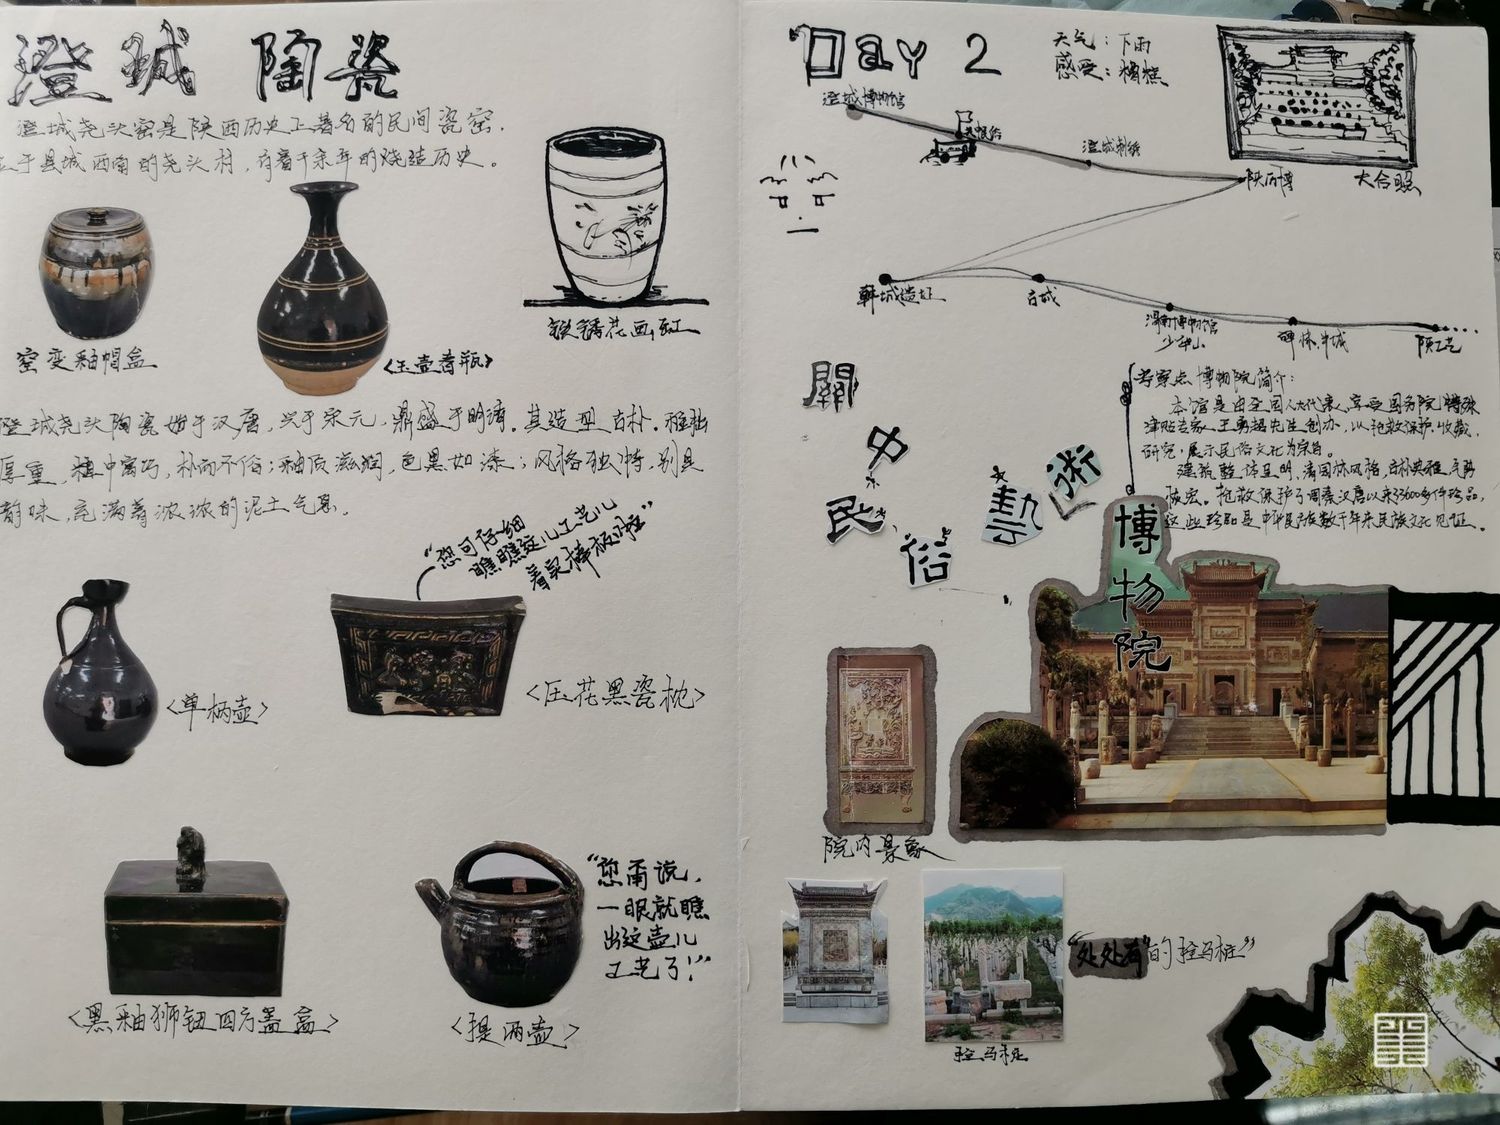 澄城 陶瓷
澄城尧头窑是陕西历史上著名的民间瓷窑，
位于县城西南的尧头村，有着千余年的烧造历史。
窑变釉帽盒
〈玉壶春瓶〉
铁锈花画缸
澄城尧头陶瓷始于汉唐，兴于宋元，鼎盛于明清。其造型古朴。粗拙
厚重，粗中寓巧，朴而不俗；釉质滋润，色黑如漆；风格独特，别具
韵味，充满着浓浓的泥土气息。
"您可仔细
瞧瞧这儿工艺儿
着实棒极啦"
〈单柄壶〉
〈压花黑瓷枕〉
〈黑釉狮钮四方盖盒〉
〈提两壶〉
"您甭说，
一眼就瞧
出这壶儿
工艺了！"
Day 2
天气：下雨
感受：糟糕
澄城博物馆
澄城刺绣
陕历博
大合照
韩城遗址
古城
渭南博物馆
碑林
关中民俗艺術博物院
考察点博物院简介：
本馆是由全国人大代表、享受国务院特殊
津贴专家、王勇超先生创办，以抢救保护、收藏、
研究、展示民俗文化为宗旨。
建筑整体呈明、清园林风格，古朴典雅，气势
恢宏。抢救保护了周秦汉唐以来33600多件珍品，
这些珍品是中华民族数千年来民族文化见证。
院内景象
"处处有"的拴马桩"
拴马桩